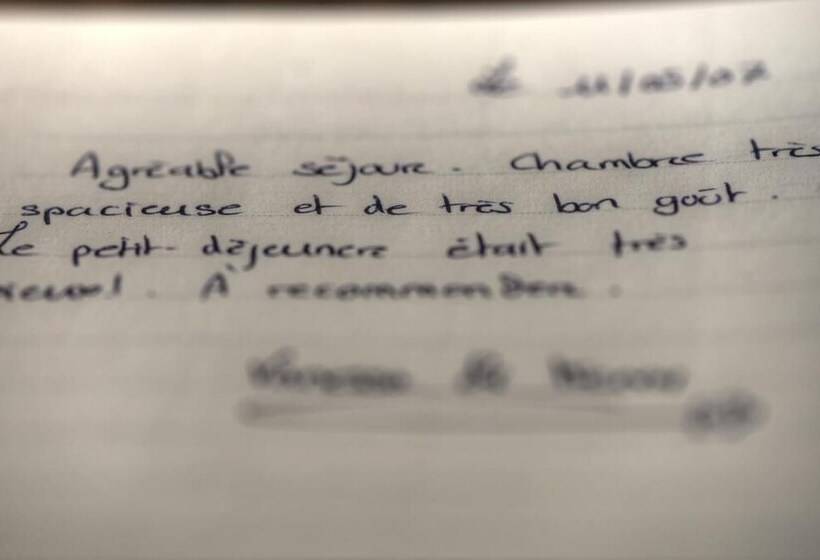 Le 11/05/07
Agréable séjour. Chambre très
spacieuse et de très bon goût.
Le petit-déjeuner était très
A recommander.